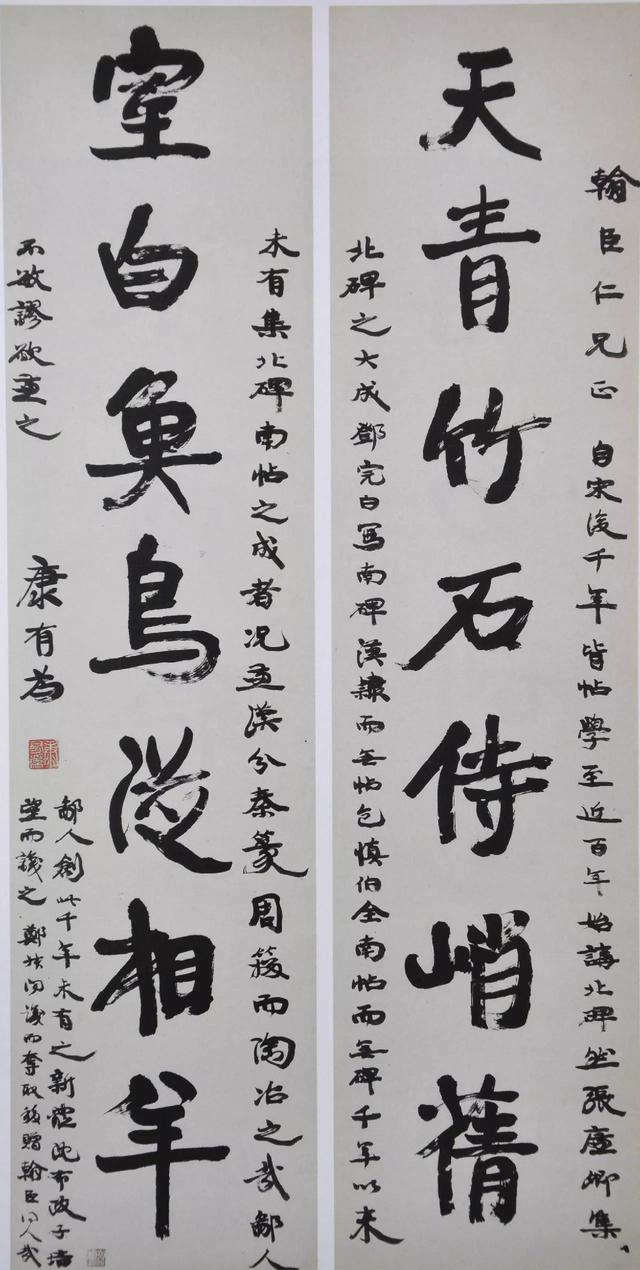 翰臣仁兄正 自宋後千年皆帖學至近百年始講北碑然張廉卿集
天青竹石侍峭蒨
北碑之大成鄧完白寫南碑漢隸而无帖包慎伯全南帖而无碑千年以來
未有集北碑南帖之成者况兼漢分秦篆周籀而陶冶之哉鄙人
室白魚鳥從相羊
不敏謬欲兼之
康有為
鄙人創此千年未有之新體沈布政子培
望而識之 鄭叔問識而奪取移贈翰臣同人哉